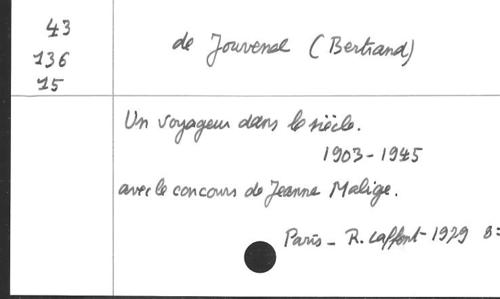 43
136
15
de Jouvenel (Bertrand)
Un voyageur dans le siècle.
1903-1945
avec le concours de Jeanne Malige.
Paris - R. Laffont - 1979 B=